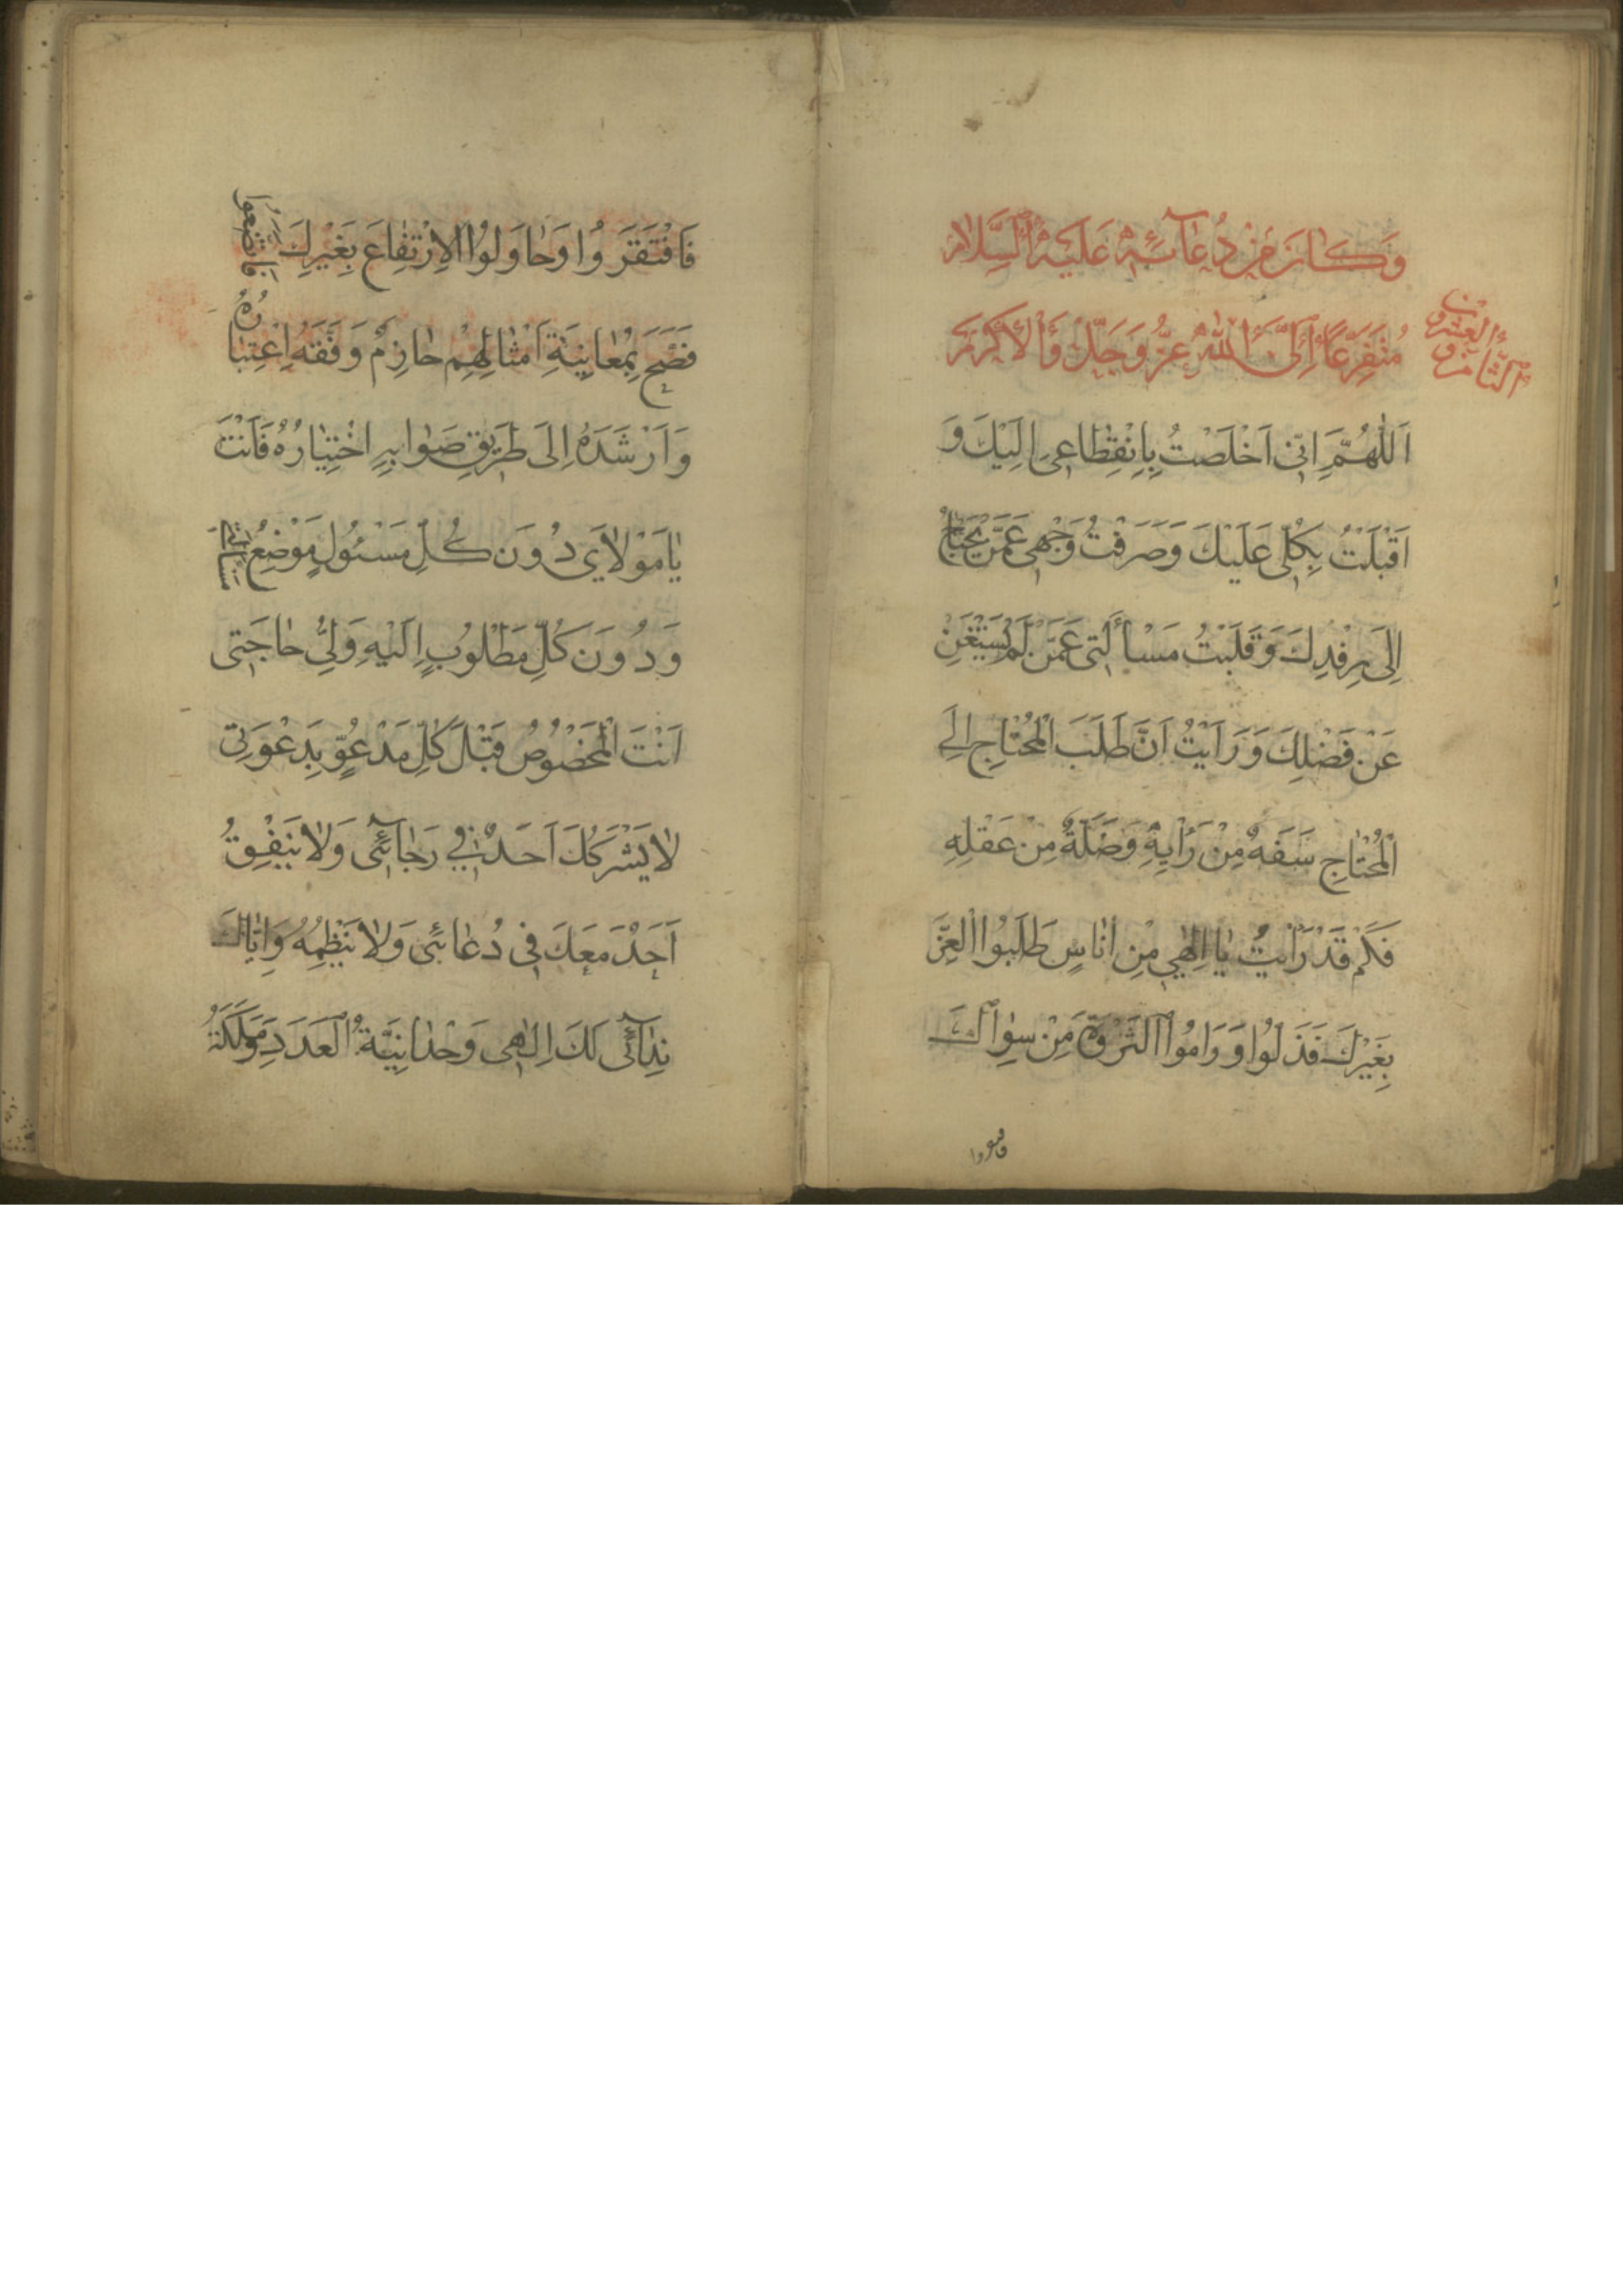 وَكَانَ مِنْ دُعَآئِهِ عَلَيْهِ السَّلَامُ
مُتَفَزِّعًا إِلَى اللهِ عَزَّ وَجَلَّ وَالْأَكْرَمَ
الثامن و
العشرون
اَللّٰهُمَّ اِنّى اَخْلَصْتُ بِاِنْقِطَاعِى اِلَيْكَ وَ
اَقْبَلْتُ بِكُلّى عَلَيْكَ وَصَرَفْتُ وَجْهِى عَمَّنْ يَحْتَاجُ
اِلَى رِفْدِكَ وَقَلَبْتُ مَسْأَلَتى عَمَّنْ لَمْ يَسْتَغْنِ
عَنْ فَضْلِكَ وَرَاَيْتُ اَنَّ طَلَبَ الْمُحْتَاجِ اِلَى
الْمُحْتَاجِ سَفَهٌ مِنْ رَاْيِهِ وَضَلَّةٌ مِنْ عَقْلِهِ
فَكَمْ قَدْ رَاَيْتُ يَا اِلٰهِي مِنْ اُنَاسٍ طَلَبُوا الْعِزَّ
بِغَيْرِكَ فَذَلُّوا وَ رَامُوا الثَّرْوَةَ مِنْ سِوَاكَ
فافتقروا
فَافْتَقَرُوا وَحَاوَلُوا الْاِرْتِفَاعَ بِغَيْرِكَ فَاتَّضَعُوا
فَصَحَّ بِمُعَايَنَةِ اَمْثَالِهِمْ حَازِمٌ وَفَّقَهُ اِعْتِبَارُهُ
وَاَرْشَدَهُ اِلَى طَرِيقِ صَوَابِهِ اخْتِيَارُهُ فَاَنْتَ
يَا مَوْلَايَ دُونَ كُلِّ مَسْئُولٍ مَوْضِعُ مَسْئَلَتى
وَدُونَ كُلِّ مَطْلُوبٍ اِلَيْهِ وَلِيُّ حَاجَتى
اَنْتَ الْمَخْصُوصُ قَبْلَ كُلِّ مَدْعُوٍّ بِدَعْوَتِى
لَا يَشْرَكُكَ اَحَدٌ فِي رَجَآئِى وَلَا يَتَّفِقُ
اَحَدٌ مَعَكَ فِى دُعَائِى وَلَا يَنْظِمُهُ وَاِيَّاكَ
نِدَآئِى لَكَ اِلٰهِى وَحْدَانِيَّةُ الْعَدَدِ وَمَلَكَةُ